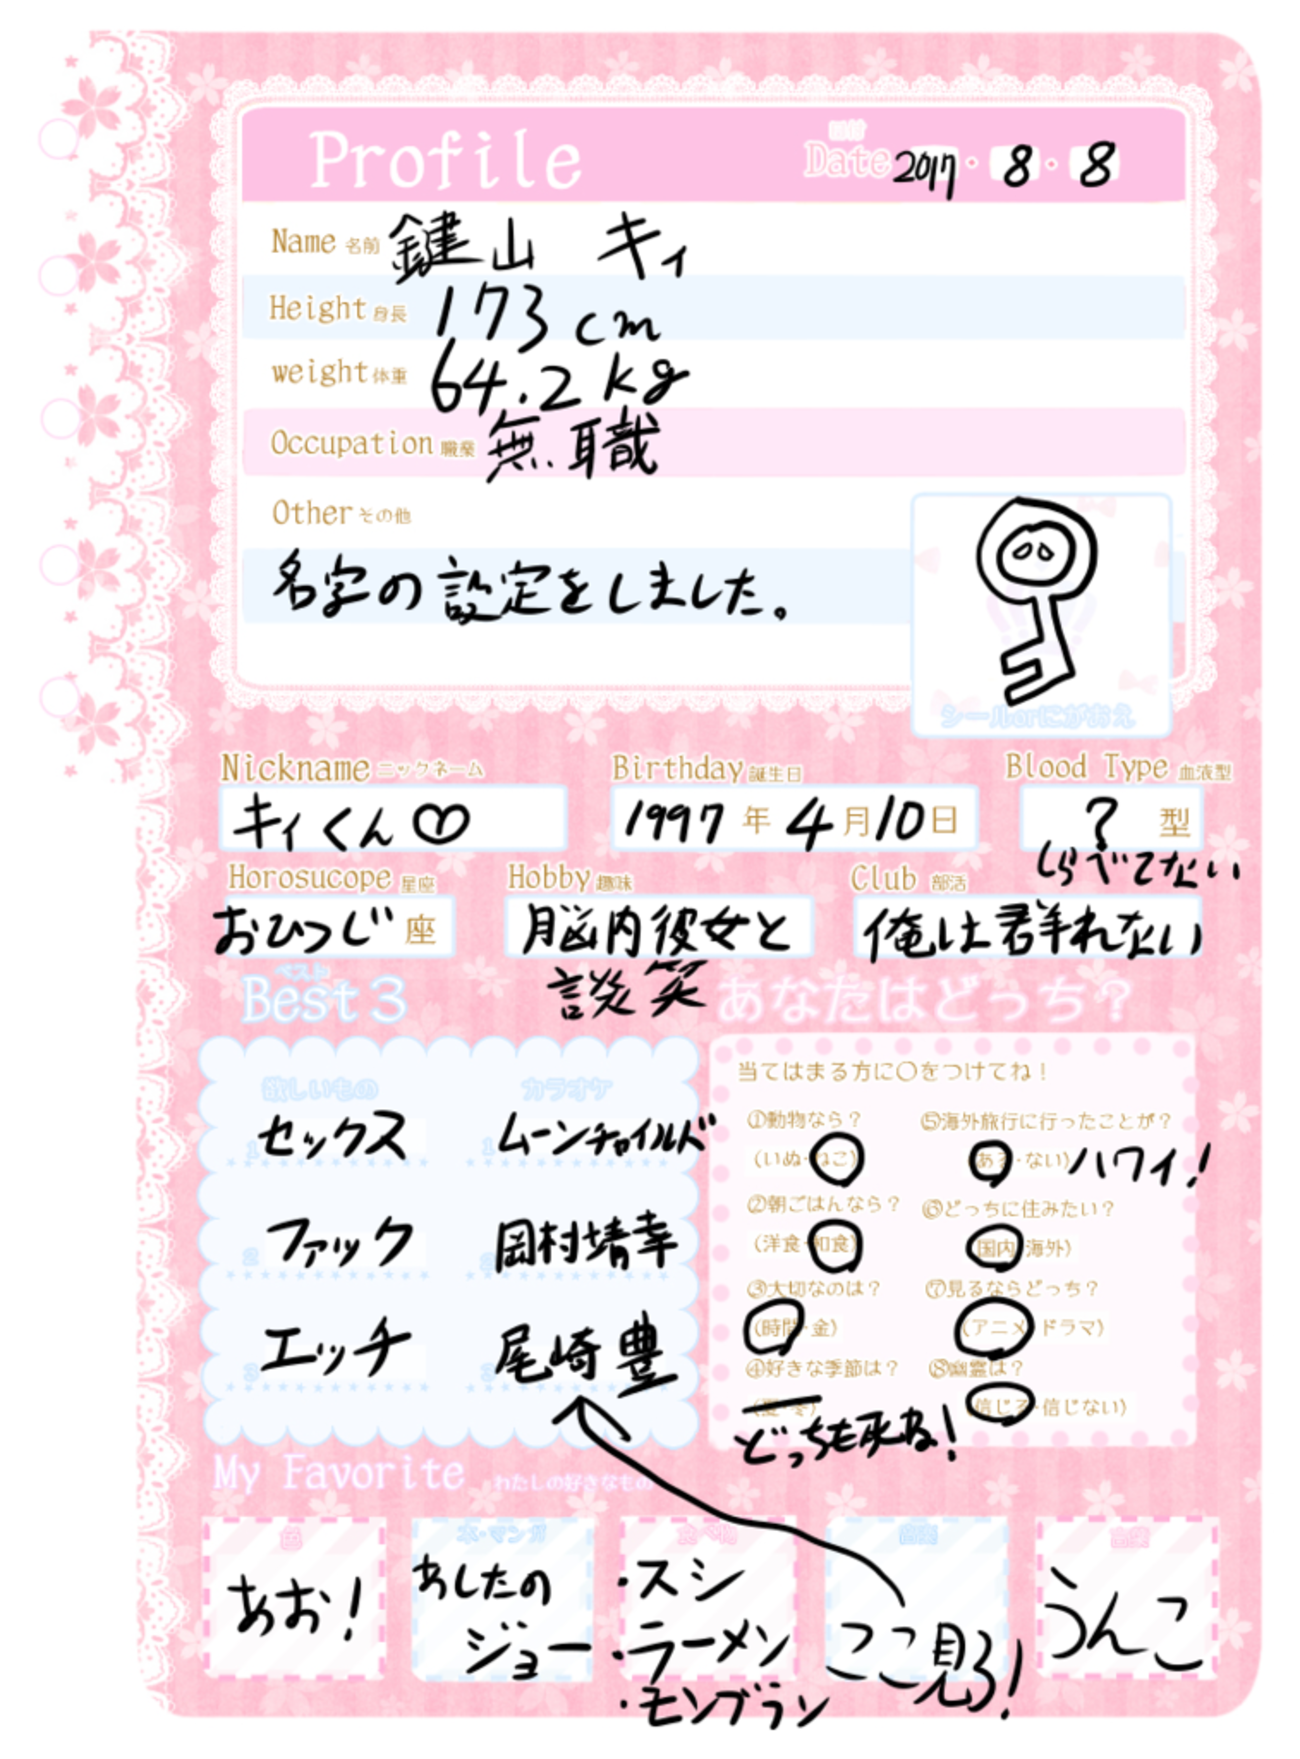 Profile
日付
Date 2017・8・8
Name 名前 鍵山 キィ
Height 身長 173cm
weight 体重 64.2kg
Occupation 職業 無職
Other その他
名字の設定をしました。
シールorにがおえ
Nickname ニックネーム
キィくん♡
Birthday 誕生日
1997年4月10日
Blood Type 血液型
?型
しらべてない
Horosucope 星座
おひつじ座
Hobby 趣味
脳内彼女と
談笑
Club 部活
俺は群れない
ベスト
Best3
欲しいもの
1 セックス
2 ファック
3 エッチ
カラオケ
1 ムーンチャイルド
2 岡村靖幸
3 尾崎豊
あなたはどっち?
当てはまる方に〇をつけてね!
①動物なら?
(いぬ・ねこ)
②朝ごはんなら?
(洋食・和食)
③大切なのは?
(時間・金)
④好きな季節は?
(夏・冬)
どっちも死ね!
⑤海外旅行に行ったことが?
(ある・ない)ハワイ!
⑥どっちに住みたい?
(国内・海外)
⑦見るならどっち?
(アニメ・ドラマ)
⑧幽霊は?
(信じる・信じない)
My Favorite わたしの好きなもの
色
あお!
本・マンガ
あしたの
ジョー
食べ物
・スシ
・ラーメン
・モンブラン
音楽
ここ見ろ!
言葉
うんこ